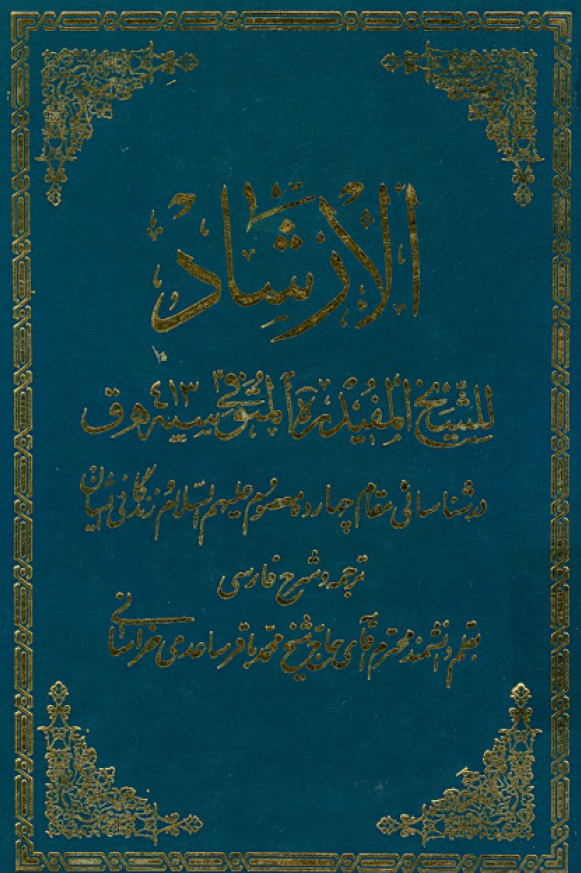 الإرشاد
للشیخ المفید ره المتوفی سنه ۴۱۳ ه ق
در شناسائی مقام چهارده معصوم علیهم السلام و زندگانی ایشان
ترجمه و شرح فارسی
بقلم دانشمند محترم آقای حاج شیخ محمد باقر ساعدی خراسانی